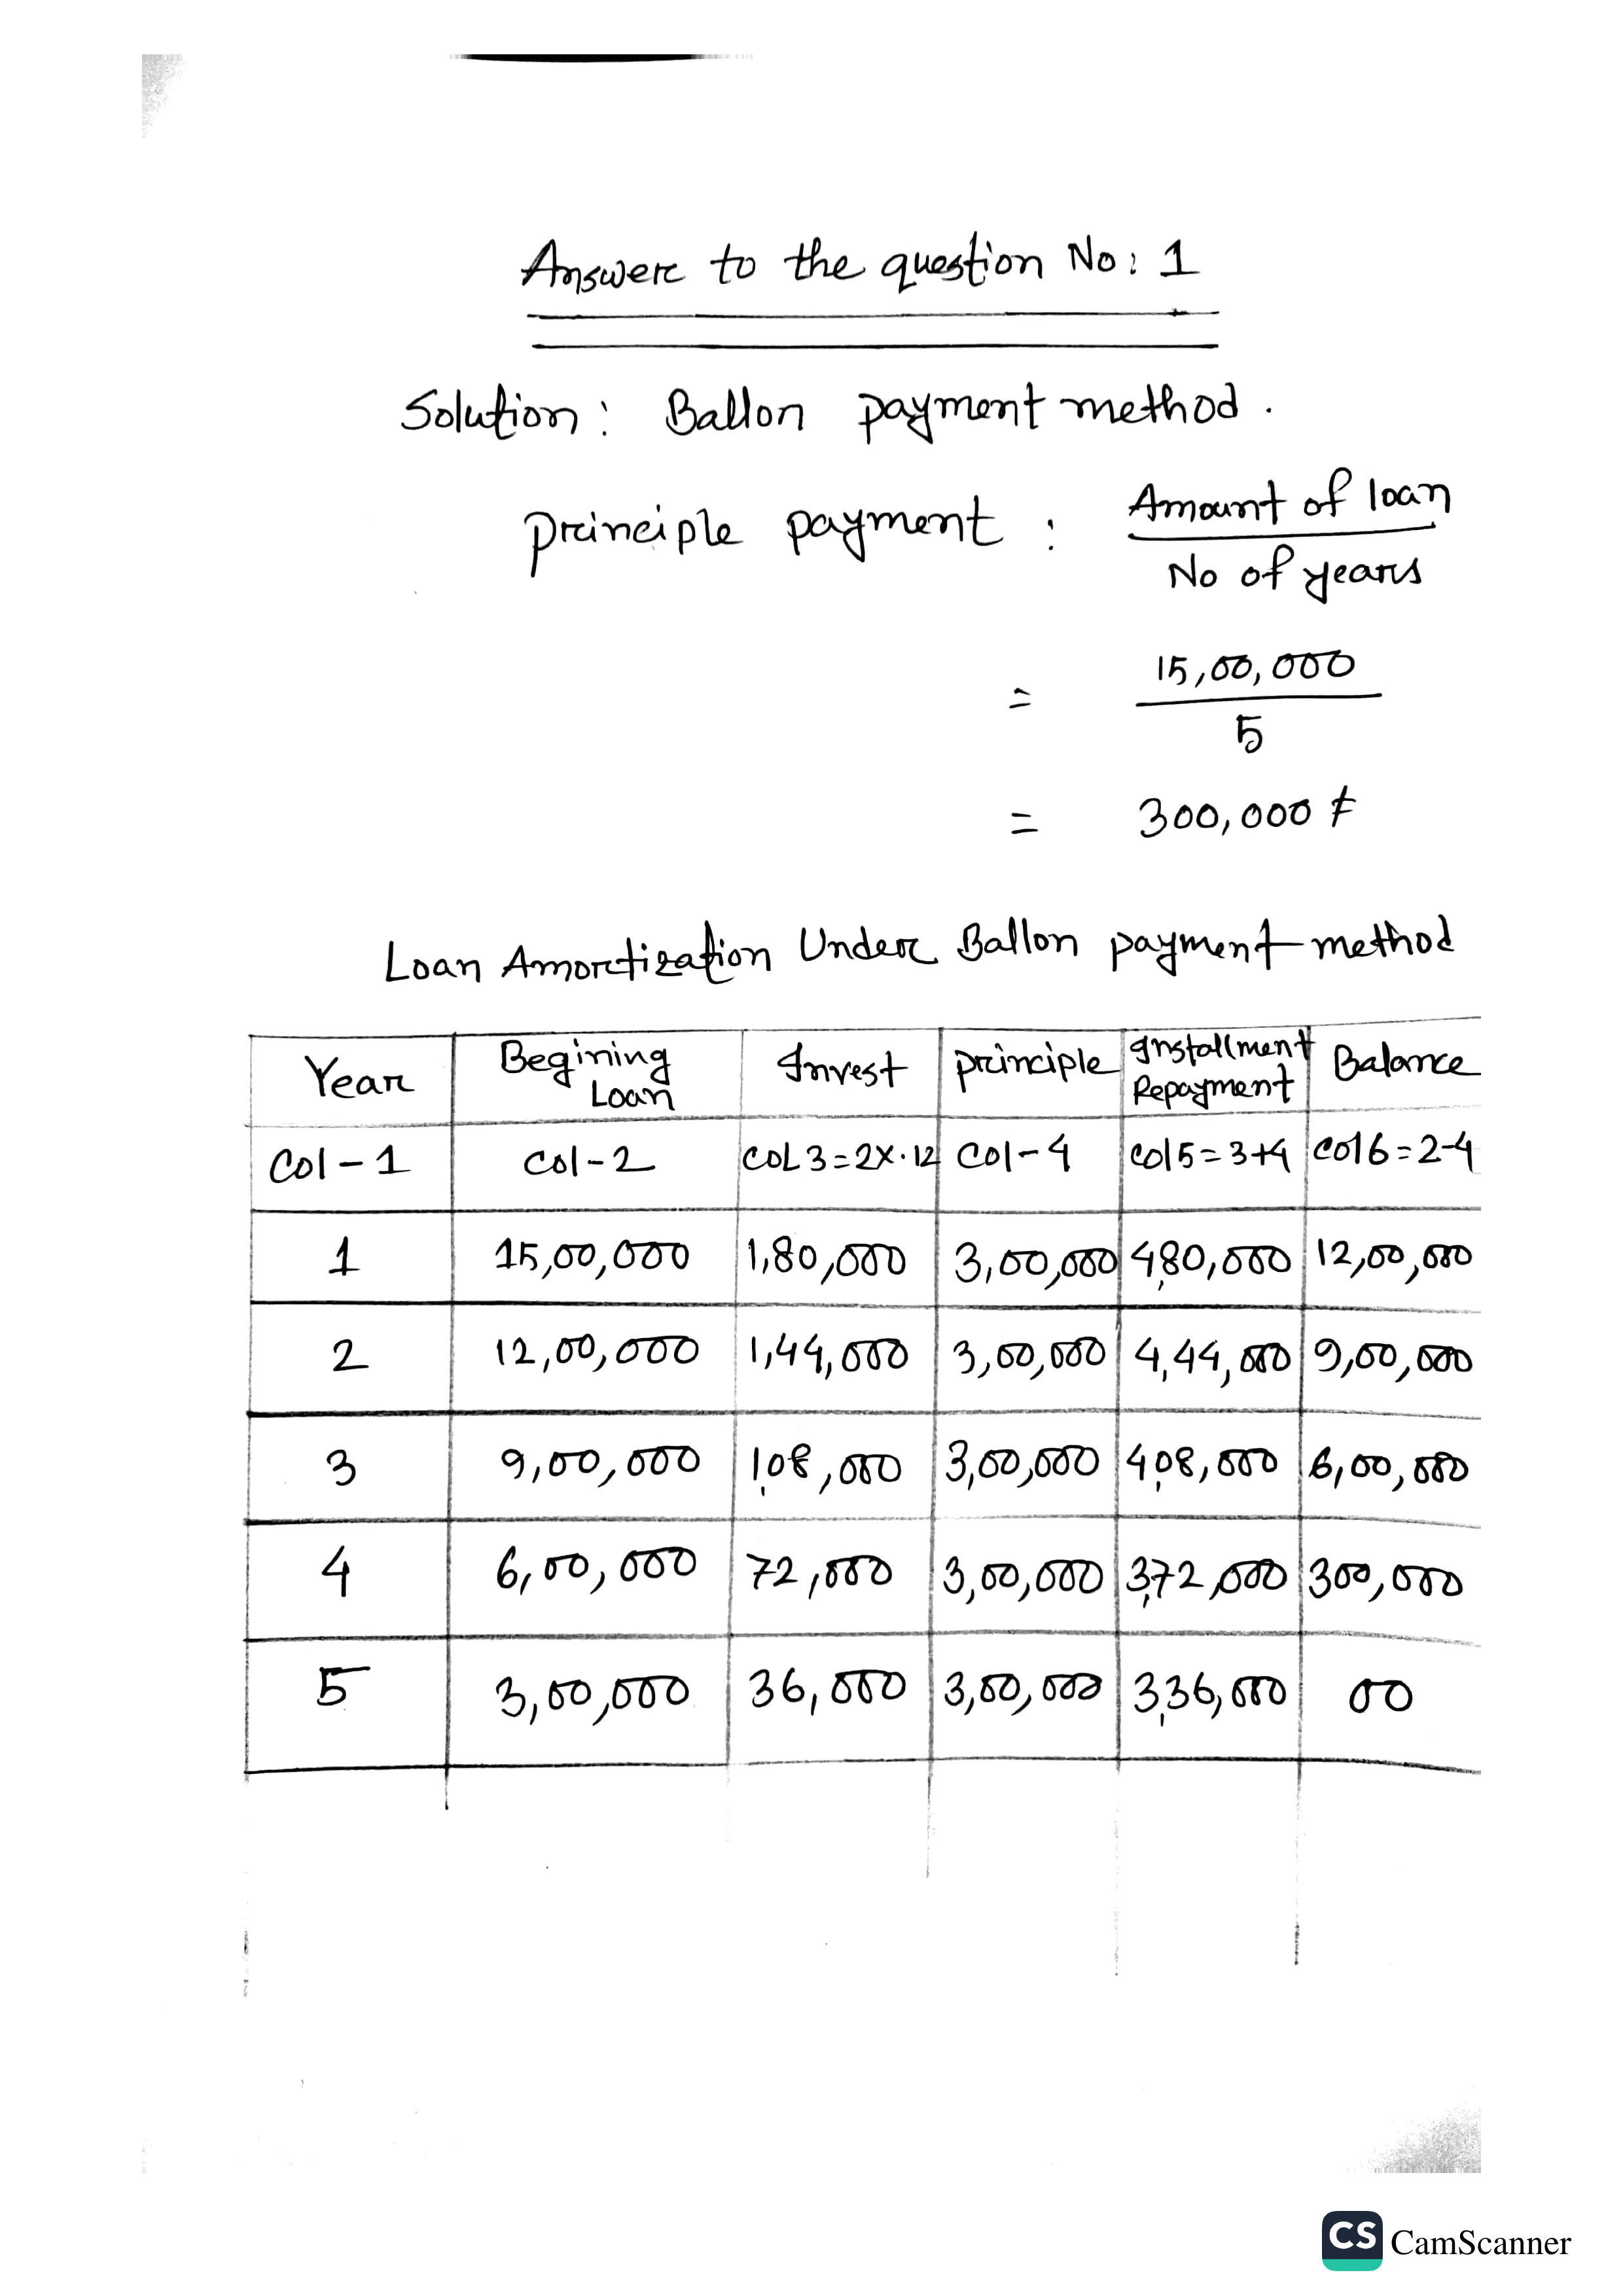 Answer to the question No: 1
Solution: Ballon payment method.
principle payment : Amount of loan
No of years
= 15,00,000
5
= 300,000 ₹
Loan Amortization Under Ballon payment method
Year Begining Loan Invest principle Installment Repayment Balance
Col-1 Col-2 COL3=2X.12 Col-4 Col5=3+4 Col6=2-4
1 15,00,000 1,80,000 3,00,000 4,80,000 12,00,000
2 12,00,000 1,44,000 3,00,000 4,44,000 9,00,000
3 9,00,000 1,08,000 3,00,000 4,08,000 6,00,000
4 6,00,000 72,000 3,00,000 3,72,000 300,000
5 3,00,000 36,000 3,00,000 3,36,000 00
CS CamScanner